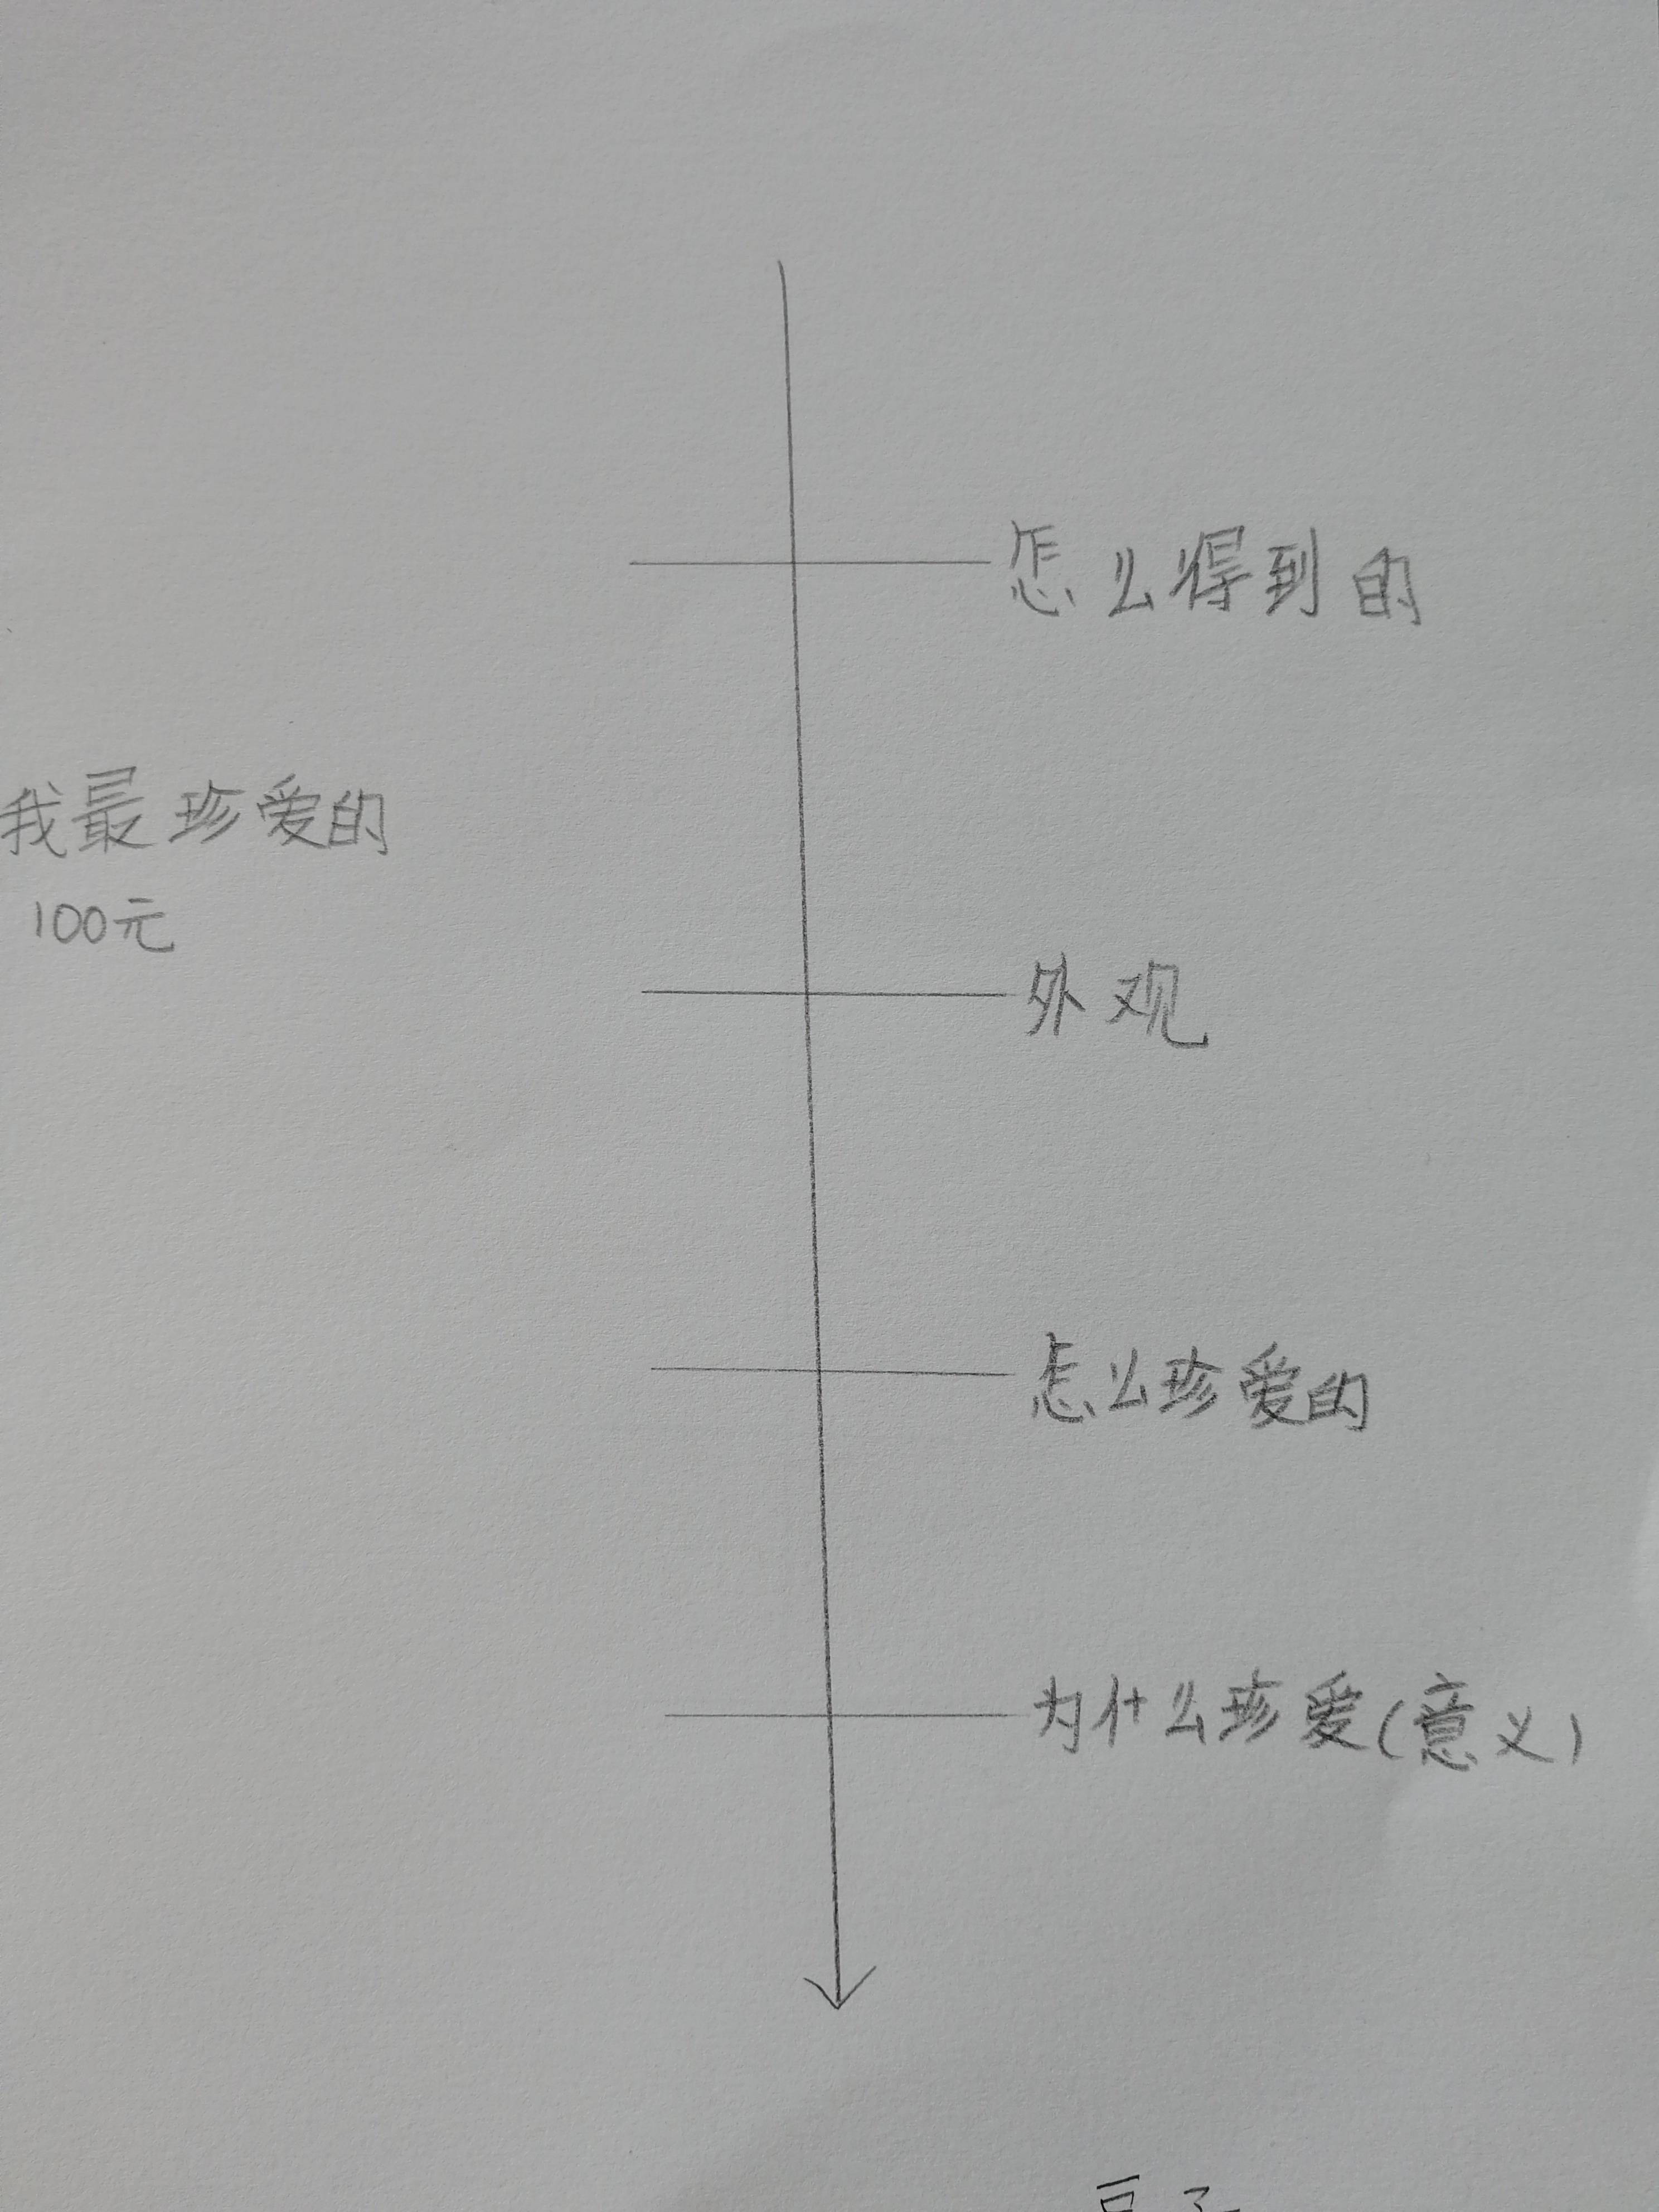 怎么得到的
我最珍爱的
100元
外观
怎么珍爱的
为什么珍爱(意义)